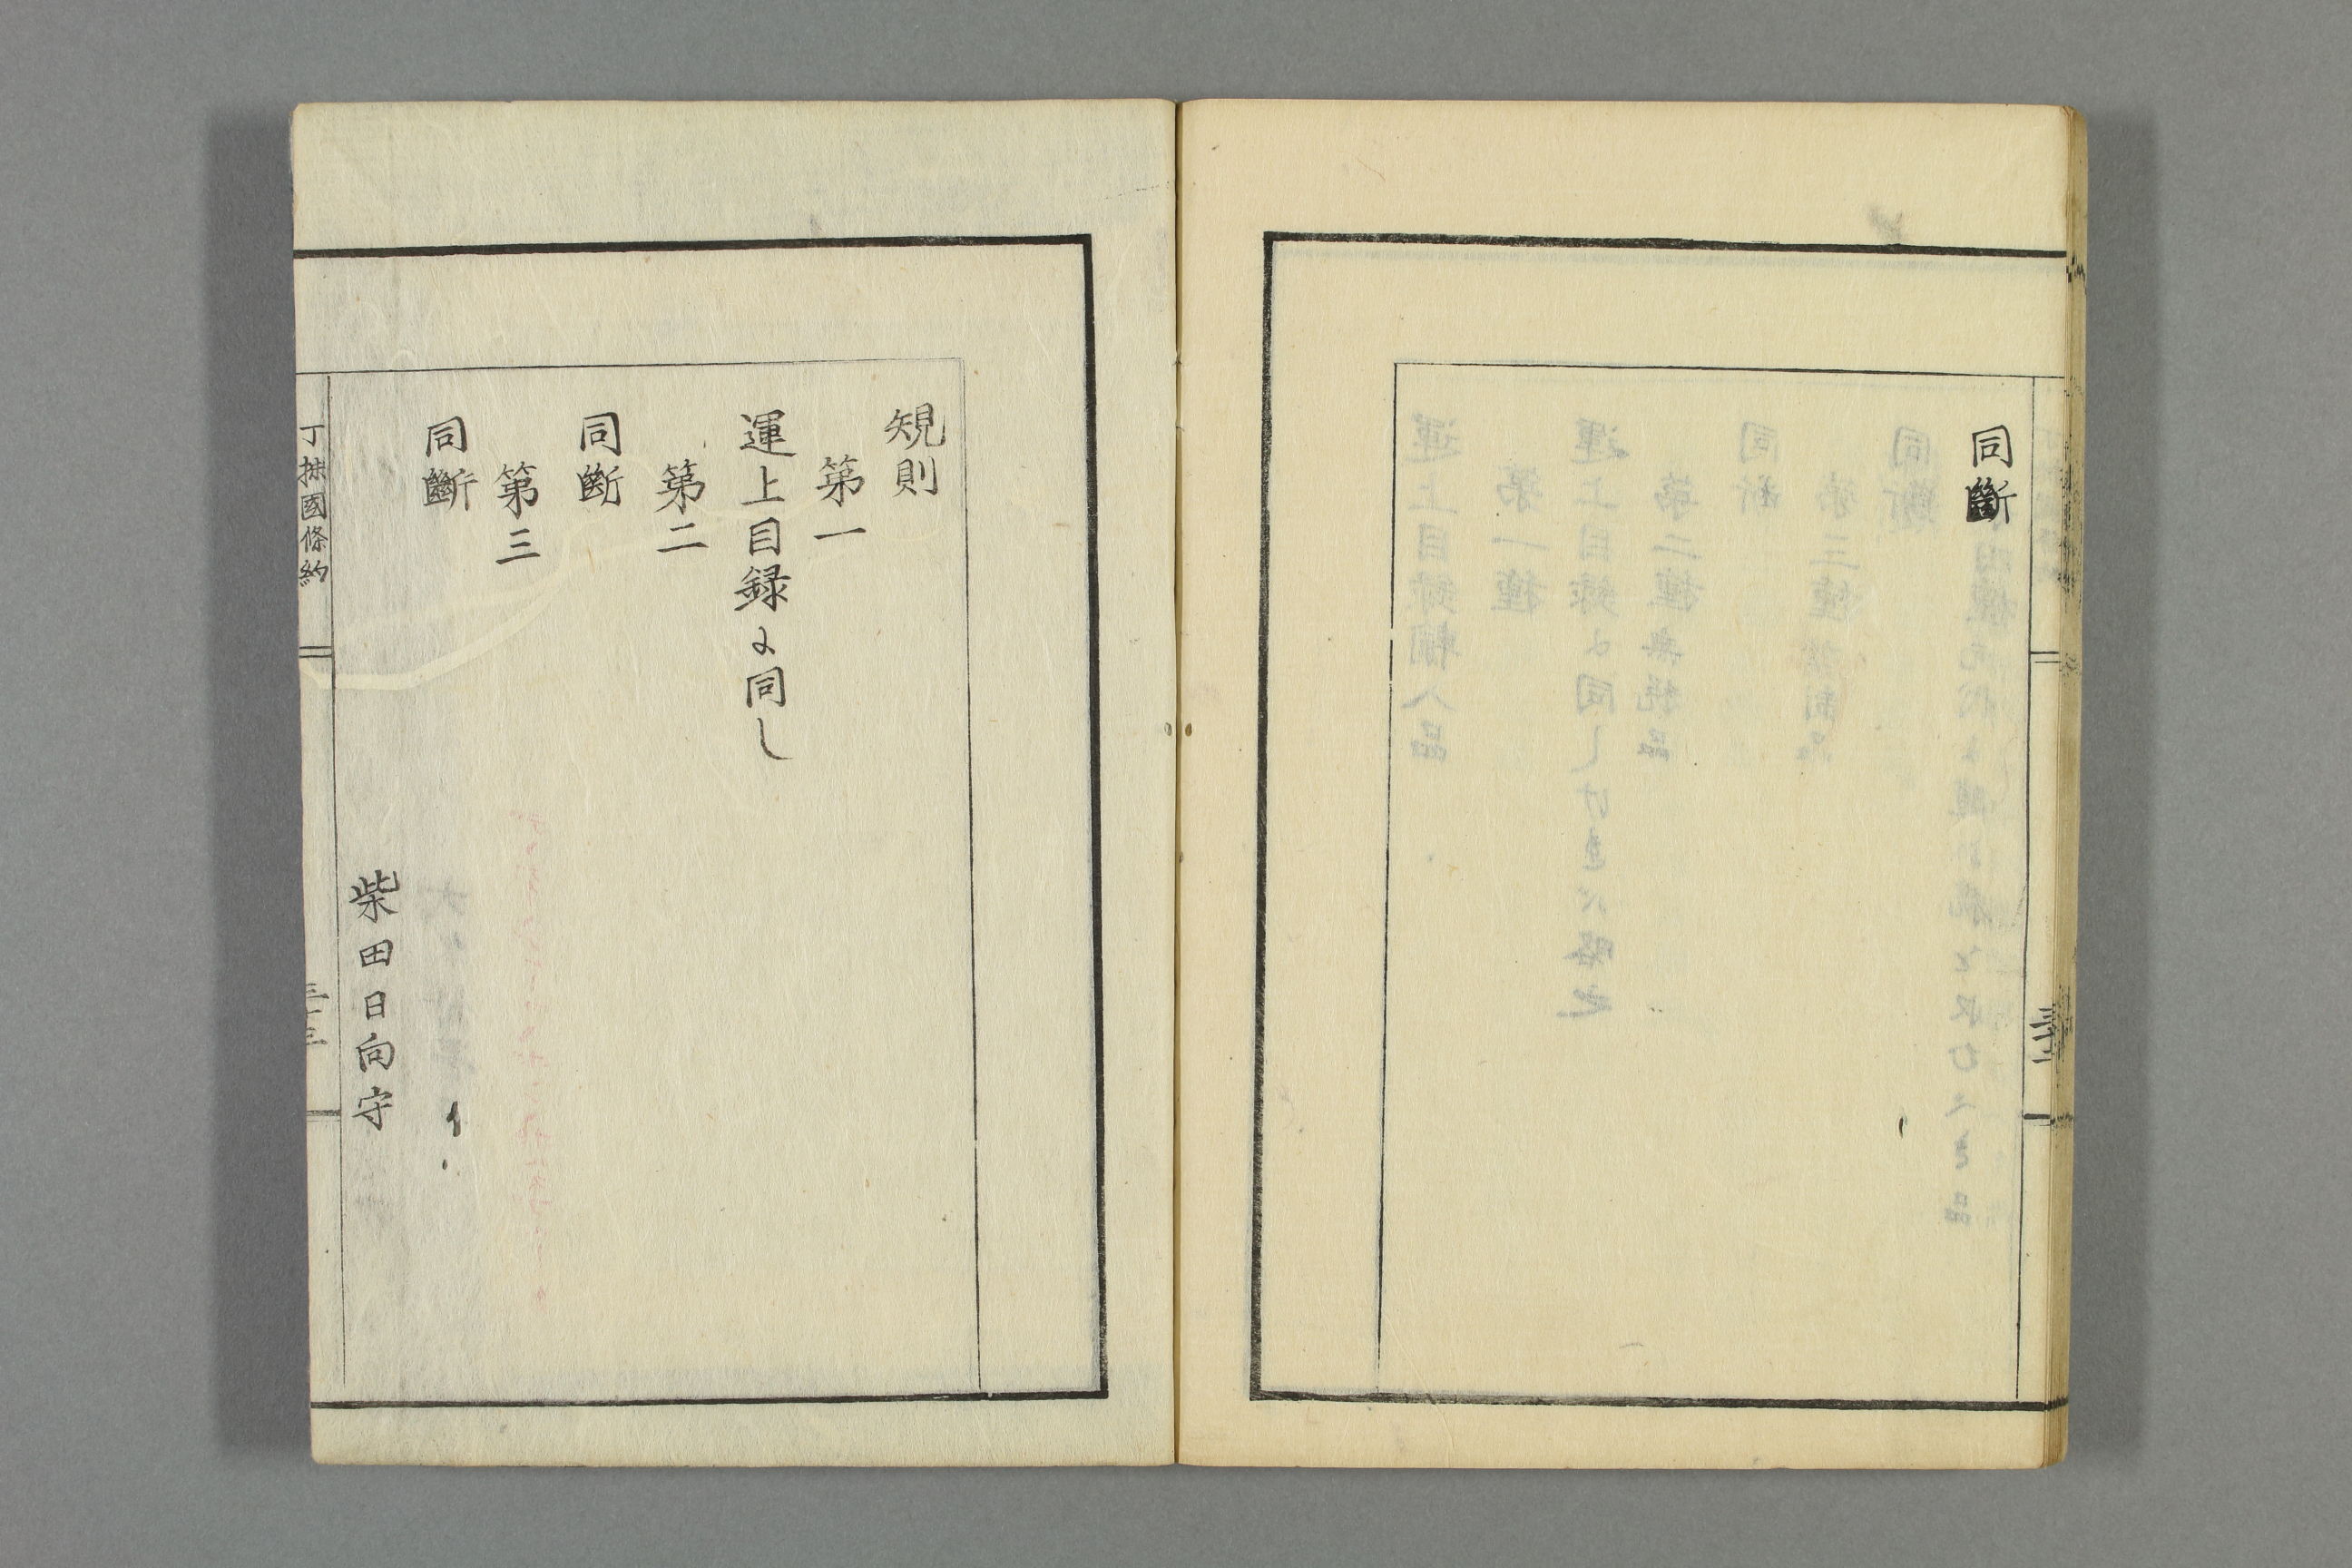 同斷
規則
第一
運上目録に同し
第二
同斷
第三
同斷
柴田日向守
丁抹國條約